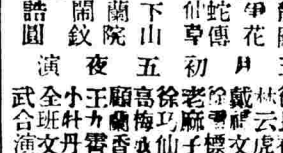 花
蛇傳
仙草
下山
蘭院
鬧釵
誥圓
月
初
五
夜
演
林雲虎
戴
標
老麻子
徐巧仙
高梅
顧蘭香
王九霄
小牡丹
全班文
武合演